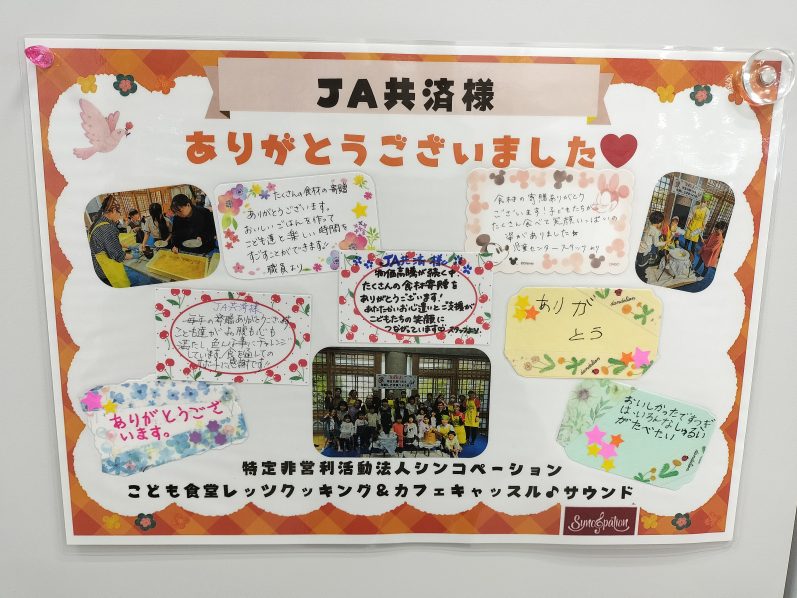 JA共済様
ありがとうございました
たくさんの食材の寄贈
ありがとうございます。
おいしいごはんを作って
こども達と楽しい時間を
すごすことができます♡
職員より
食材の寄贈ありがとう
ございます! 子どもたちが
たくさん食べて笑顔いっぱいの
姿がありました☆
児童センタースタッフより
JA共済様へ
物価高騰が続く中、
たくさんの食材寄贈を
ありがとうございます!
あたたかいお心遣いとご支援が
こどもたちの笑顔に
つながっています♡ スタッフより
JA共済様
毎年の寄贈ありがとうございます
こども達がお腹も心も
満たし 色んな事にチャレンジ
しています! 食を通しての
に感謝です!!
ありが
とう
dandelion
dandelion
ありがとうござ
います。
おいしかったですつぎ
は、いろんなしゅるい
がたべたい
特定非営利活動法人シンコペーション
こども食堂レッツクッキング&カフェキャッスル♪サウンド
Syncopation